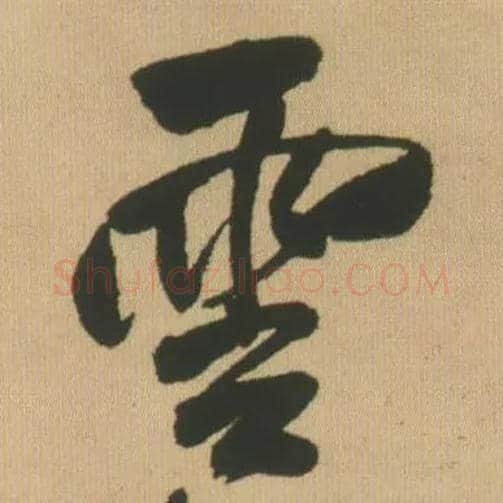 雲
Shufaziliao.COM